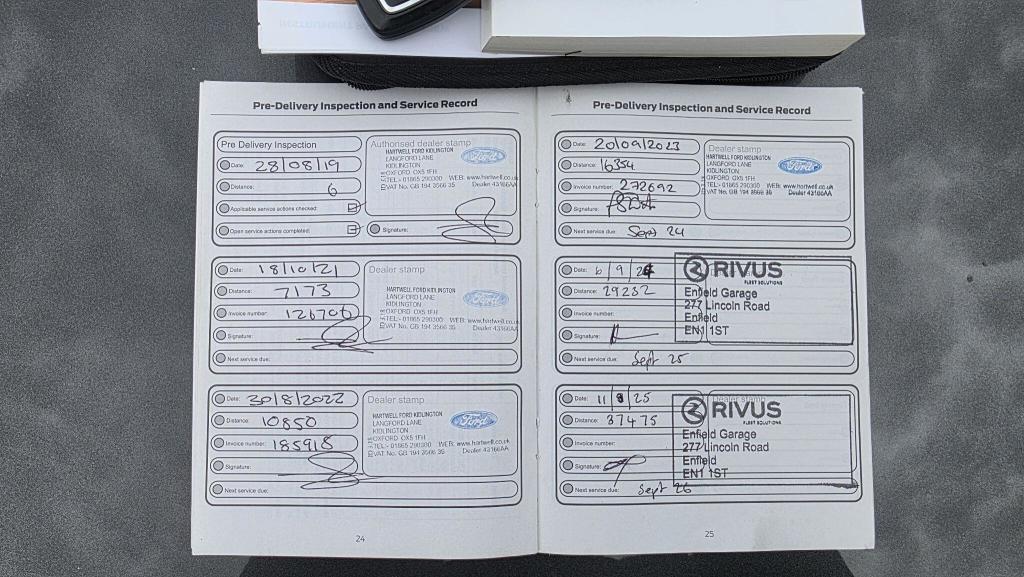 Pre-Delivery Inspection and Service Record
Pre Delivery Inspection
Date: 28/08/19
Distance: 6
Applicable service actions checked:
Open service actions completed:
Authorised dealer stamp
HARTWELL FORD KIDLINGTON
LANGFORD LANE
KIDLINGTON
OXFORD OX5 1FH
TEL:- 01865 290300 WEB: www.hartwell.co.uk
VAT No. GB 194 3566 35 Dealer 43166AA
Ford
Signature:
Date: 18/10/21
Distance: 7173
Invoice number: 126706
Signature:
Next service due:
Dealer stamp
HARTWELL FORD KIDLINGTON
LANGFORD LANE
KIDLINGTON
OXFORD OX5 1FH
TEL:- 01865 290300 WEB: www.hartwell.co.uk
VAT No. GB 194 3566 35 Dealer 43166AA
Ford
Date: 30/8/2022
Distance: 10850
Invoice number: 185915
Signature:
Next service due:
Dealer stamp
HARTWELL FORD KIDLINGTON
LANGFORD LANE
KIDLINGTON
OXFORD OX5 1FH
TEL:- 01865 290300 WEB: www.hartwell.co.uk
VAT No. GB 194 3566 35 Dealer 43166AA
Ford
24
Pre-Delivery Inspection and Service Record
Date: 20/09/2023
Distance: 16354
Invoice number: 272692
Signature:
Next service due: Sept 24
Dealer stamp
HARTWELL FORD KIDLINGTON
LANGFORD LANE
KIDLINGTON
OXFORD OX5 1FH
TEL:- 01865 290300 WEB: www.hartwell.co.uk
VAT No. GB 194 3566 35 Dealer 43166AA
Ford
Date: 6/9/24
Distance: 29232
Invoice number:
Signature:
Next service due: Sept 25
RIVUS
FLEET SOLUTIONS
Enfield Garage
277 Lincoln Road
Enfield
EN1 1ST
Date: 11/8/25
Distance: 37475
Invoice number:
Signature:
Next service due: Sept 26
Dealer stamp
RIVUS
FLEET SOLUTIONS
Enfield Garage
277 Lincoln Road
Enfield
EN1 1ST
25